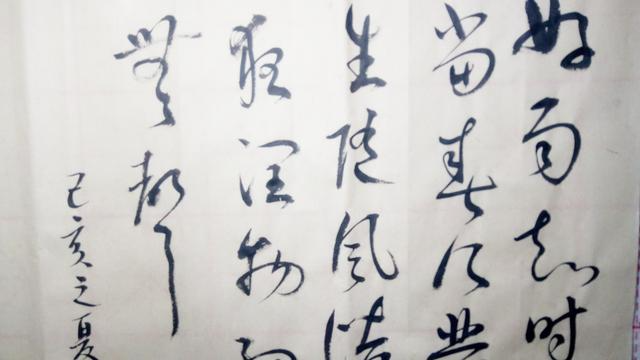 好雨知时
当春乃发
生随风潜
夜润物细
無声
己亥之夏